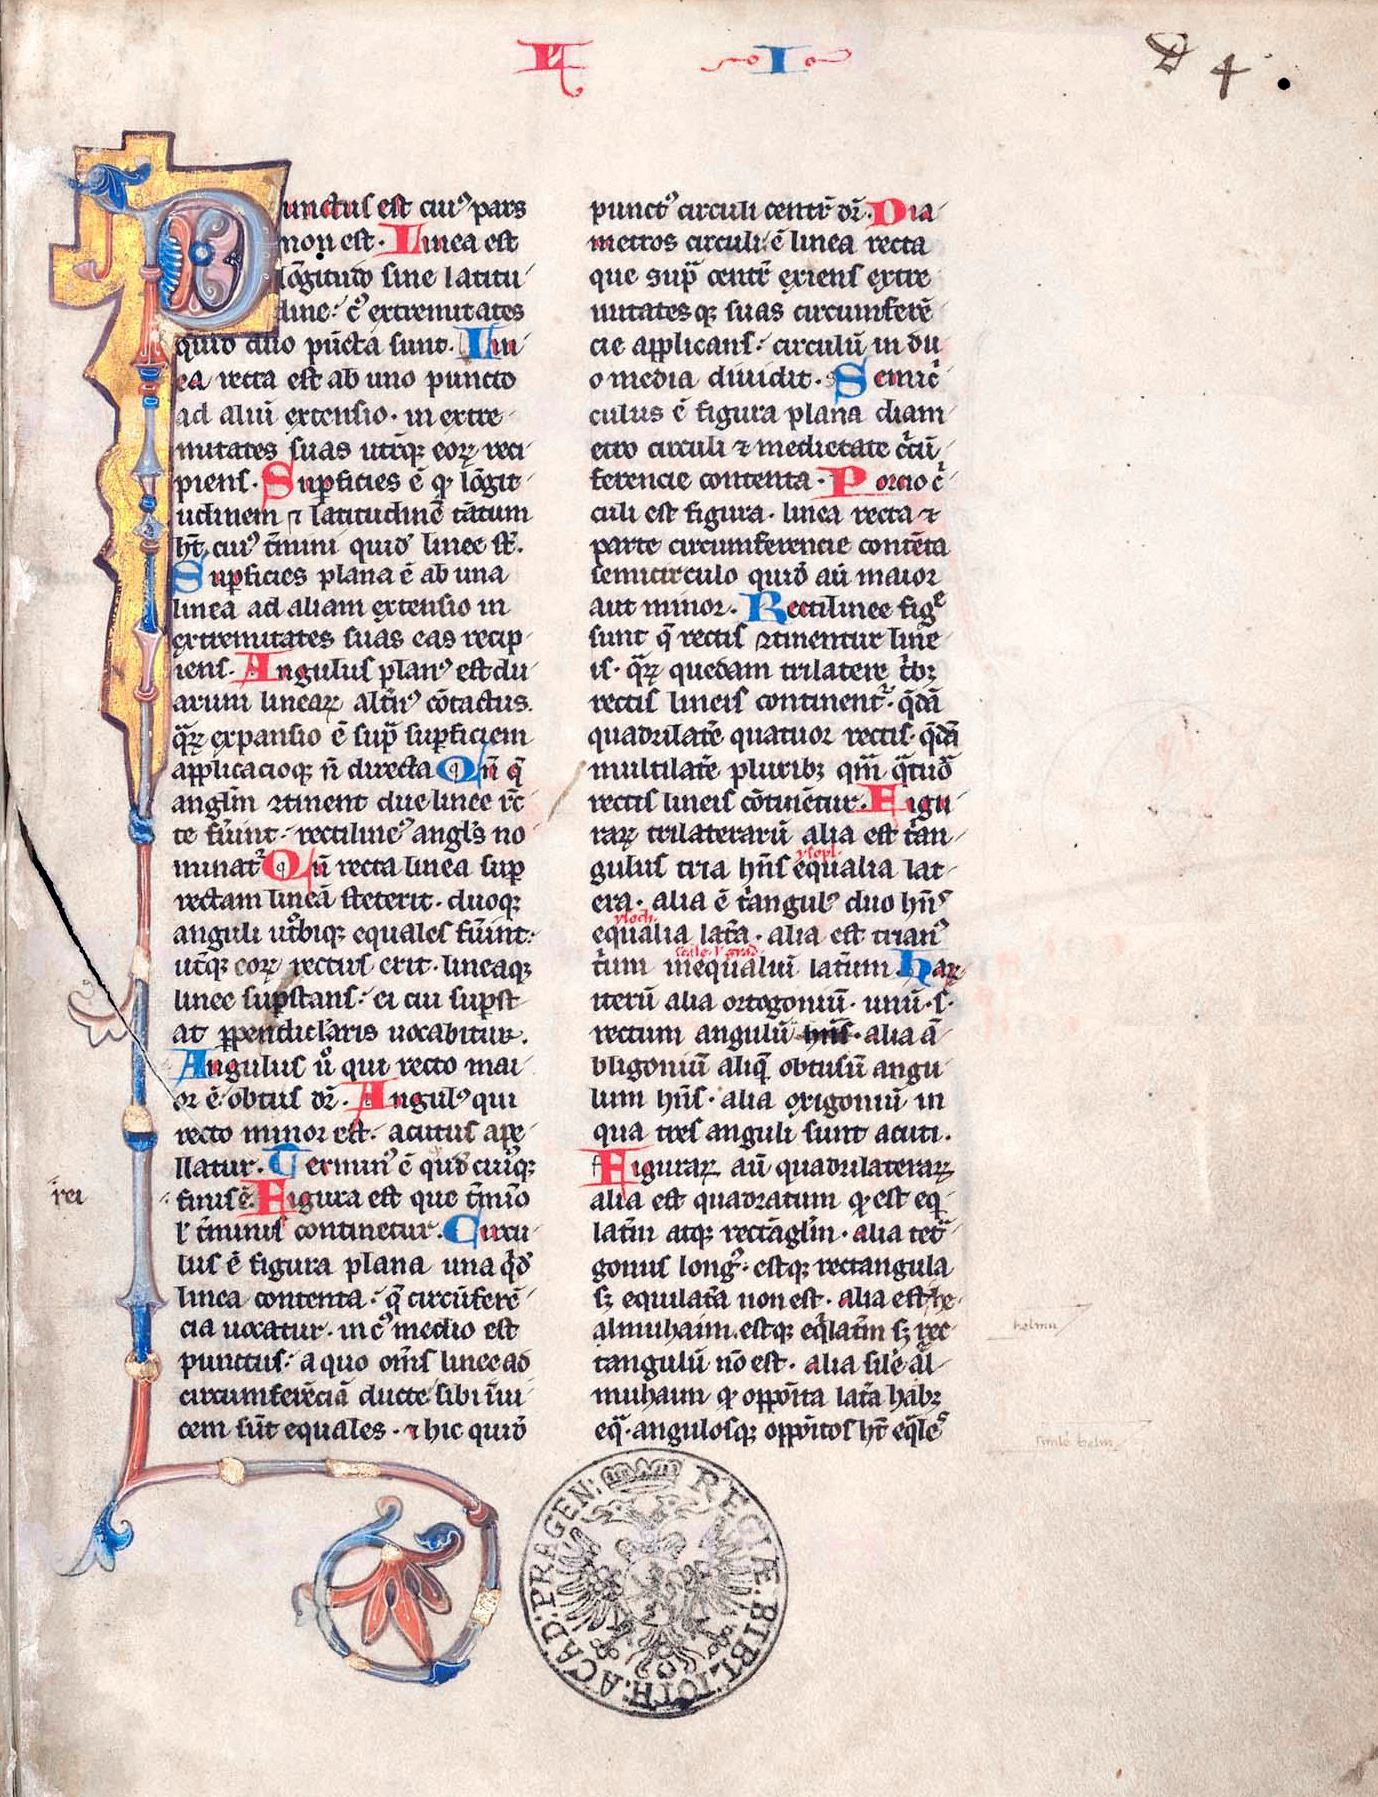 L I
D 4.
Punctus est cuiꝰ pars
non est. Linea est
lõgitudo sine latitu
dine: cꝰ extremitates
quid̄ duo pūcta sunt. Lin
ea recta est ab uno puncto
ad aliū extensio. in extre
mitates suas utrq̄ꝫ eoꝝ reci
piens. Supficies ē q̄ lõgit
udinem ⁊ latitudinē tãtum
ht̄. cuiꝰ t̄mini quid̄ linee st̄.
Supficies plana ē ab una
linea ad aliam extensio in
extremitates suas eas recip
iens. Angulus planꝰ est du
arum lineaꝝ alt̄niꝰ cõtactus.
q̄ꝝ expansio ē sup̄ supficiem
applicacioqꝫ ñ directa. Qñ q̄
angl̄m ꝯtinent due linee rc̄
te fūint: rectilineꝰ angl̄s no
minat᷑. Qñ recta linea sup
rectam lineã steterit. duoqꝫ
anguli ut̄biqꝫ equales fūint:
ut̄qꝫ eoꝝ rectus erit. lineaqꝫ
linee sup̄stans: ei cui supst
at ꝑpendicl̄aris uocabitur.
Angulus u᷑o qui recto mai
or ē obtus dr̄. Angulꝰ qui
recto minor est. acutus ape
llatur. Terminꝰ ē quod̄ cuiꝰqꝫ
rei
finis ē. Figura est que t̄mīo
l̓ t̄minis continetur. Circu
lus ē figura plana una q̄d̄
linea contenta: q̄ circūferē
cia uocatur. in cꝰ medio est
punctus: a quo om̄s linee ad
circumferēciã ducte sibi īui
cem sūt equales. ⁊ hic quid̄
punctꝰ circuli centr̄ dr̄. Dia
metros circuli: ē linea recta
que sup̄ centr̄ exiens extre
mitatesqꝫ suas circumferē
cie applicans: circulū in du
o media diuidit. Semic̄
culus ē figura plana diam
etro circuli ⁊ medietate c̄cū
ferencie contenta. Porcio c̄
culi est figura. linea recta ⁊
parte circumferencie contēta
semicirculo quid̄ aū maior
aut minor. Rectilinee fig᷑e
sunt q̄ rectis ꝯtinentur line
is. q̄ꝝ quedam trilatere t̄bꝫ
rectis lineis continent᷑. q̄dã
quadrilat̄e quatuor rectis. q̄dã
multilat̄e pluribꝫ qm̄ q̄tuor̄
rectis lineis cõtinētur. Figu
raꝝ trilaterarū alia est t̄ian
ysopl.
gulus tria hñs equalia lat
era. alia ē t̄angulꝰ duo hñs
ysoch.
equalia lat̄a. alia est trianꝰ
t̄um inequaliū lat̄um. Haꝝ
iterū alia ortogoniū. unū .s.
rectum angulū hñs. alia ã
bligoniū aliq̄ obtusū angu
lum hñs. alia oxigoniū in
qua tres anguli sunt acuti.
Figuraꝝ aū quadrilateraꝝ
alia est quadratum q̄ est eq̄
lat̄m atqꝫ rectãgl̄m. alia tet̄
gonus longꝰ. estqꝫ rectangula
sꝫ equilat̄a non est. alia est he
almuhaim. estqꝫ eq̄lat̄m sꝫ rec
helmu
tangulū nõ est. alia sil̄e al̄
muhaim q̄ oppõita lat̄a habꝫ
simile helm
eq̄. angulosqꝫ oppõitos ht̄ eq̄les
REGIÆ BIBLIOTH: ACAD: PRAGEN: